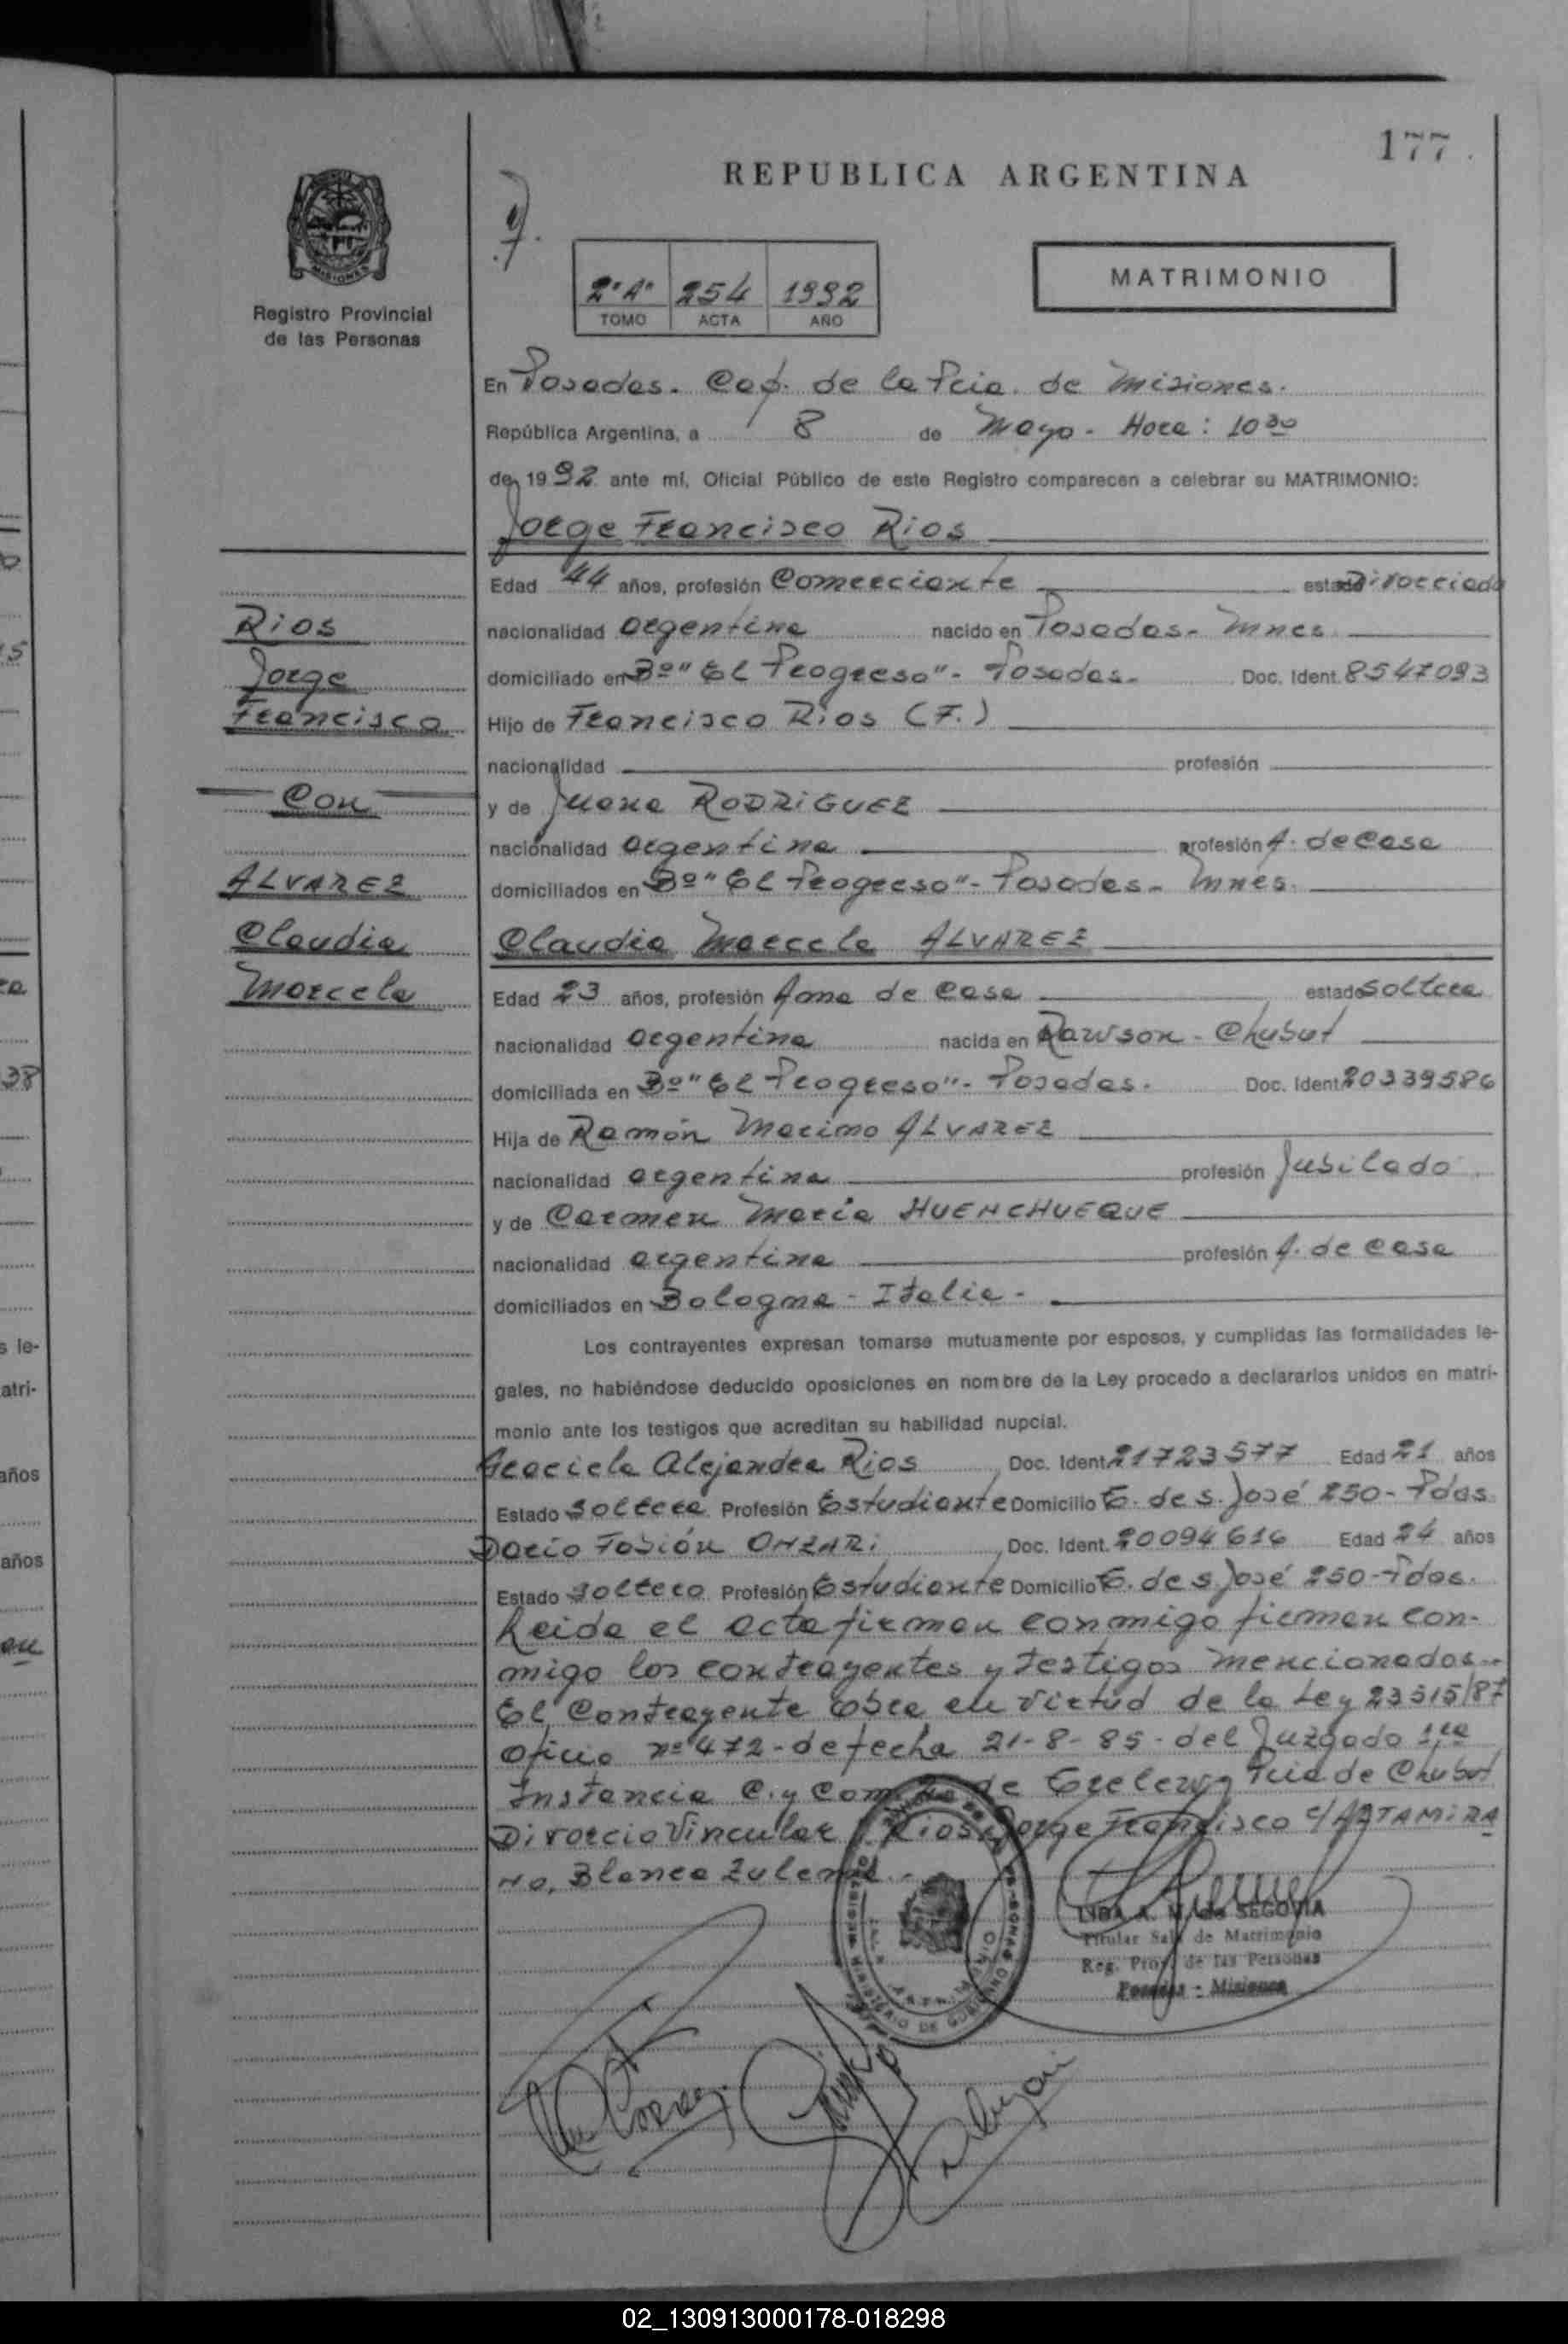 177
REPUBLICA ARGENTINA
MISIONES
Registro Provincial
de las Personas
2º "A" 254 1992
TOMO ACTA AÑO
MATRIMONIO
En Posadas. Cap. de la Pcia. de Misiones.
República Argentina, a 8 de Mayo - Hora: 10 30
de 1992 ante mí, Oficial Público de este Registro comparecen a celebrar su MATRIMONIO:
Jorge Francisco Rios
Edad 44 años, profesión Comerciante estado Divorciado
Rios
nacionalidad argentina nacido en Posadas - Mnes.
Jorge
domiciliado en Bº "El Progreso" - Posadas. Doc. Ident. 8547093
Francisco
Hijo de Francisco Rios (F.)
nacionalidad profesión
Con
y de Juana RODRIGUEZ
nacionalidad argentina profesión A. de Casa
ALVAREZ
domiciliados en Bº "El Progreso" - Posadas - Mnes.
Claudia
Claudia Marcela ALVAREZ
Marcela
Edad 23 años, profesión Ama de Casa estado soltera
nacionalidad argentina nacida en Rawson - Chubut
domiciliada en Bº "El Progreso" - Posadas. Doc. Ident 20339586
Hija de Ramón Marcimo ALVAREZ
nacionalidad argentina profesión Jubilado
y de Carmen María HUENCHUEQUE
nacionalidad argentina profesión A. de Casa
domiciliados en Bologna - Italia -
Los contrayentes expresan tomarse mutuamente por esposos, y cumplidas las formalidades le-
gales, no habiéndose deducido oposiciones en nombre de la Ley procedo a declararlos unidos en matri-
monio ante los testigos que acreditan su habilidad nupcial.
Graciela Alejandra Rios Doc. Ident. 21723577 Edad 21 años
Estado soltera Profesión Estudiante Domicilio E. de S. José 250 - Pdas.
Dario Fabián ONZARI Doc. Ident. 20094616 Edad 24 años
Estado soltero Profesión Estudiante Domicilio E. de S. José 250 - Pdas.
Leida el acta firman conmigo firman con-
migo los contrayentes y testigos mencionados..
El Contrayente Obra en virtud de la Ley 23515/87
Oficio nº 472 - de fecha 21-8-85 - del Juzgado 1ra
Instancia C. y Com. de Trelew, Pcia de Chubut
Divorcio Vincular Rios Jorge Francisco c/ ALTAMIRA
No, Blanca Zulema.-
LIDA A. de SEGOVIA
Titular Sala de Matrimonio
Reg. Prov. de las Personas
Posadas - Misiones
MINISTERIO DE GOBIERNO
s le-
atri-
años
años
38
02_130913000178-018298